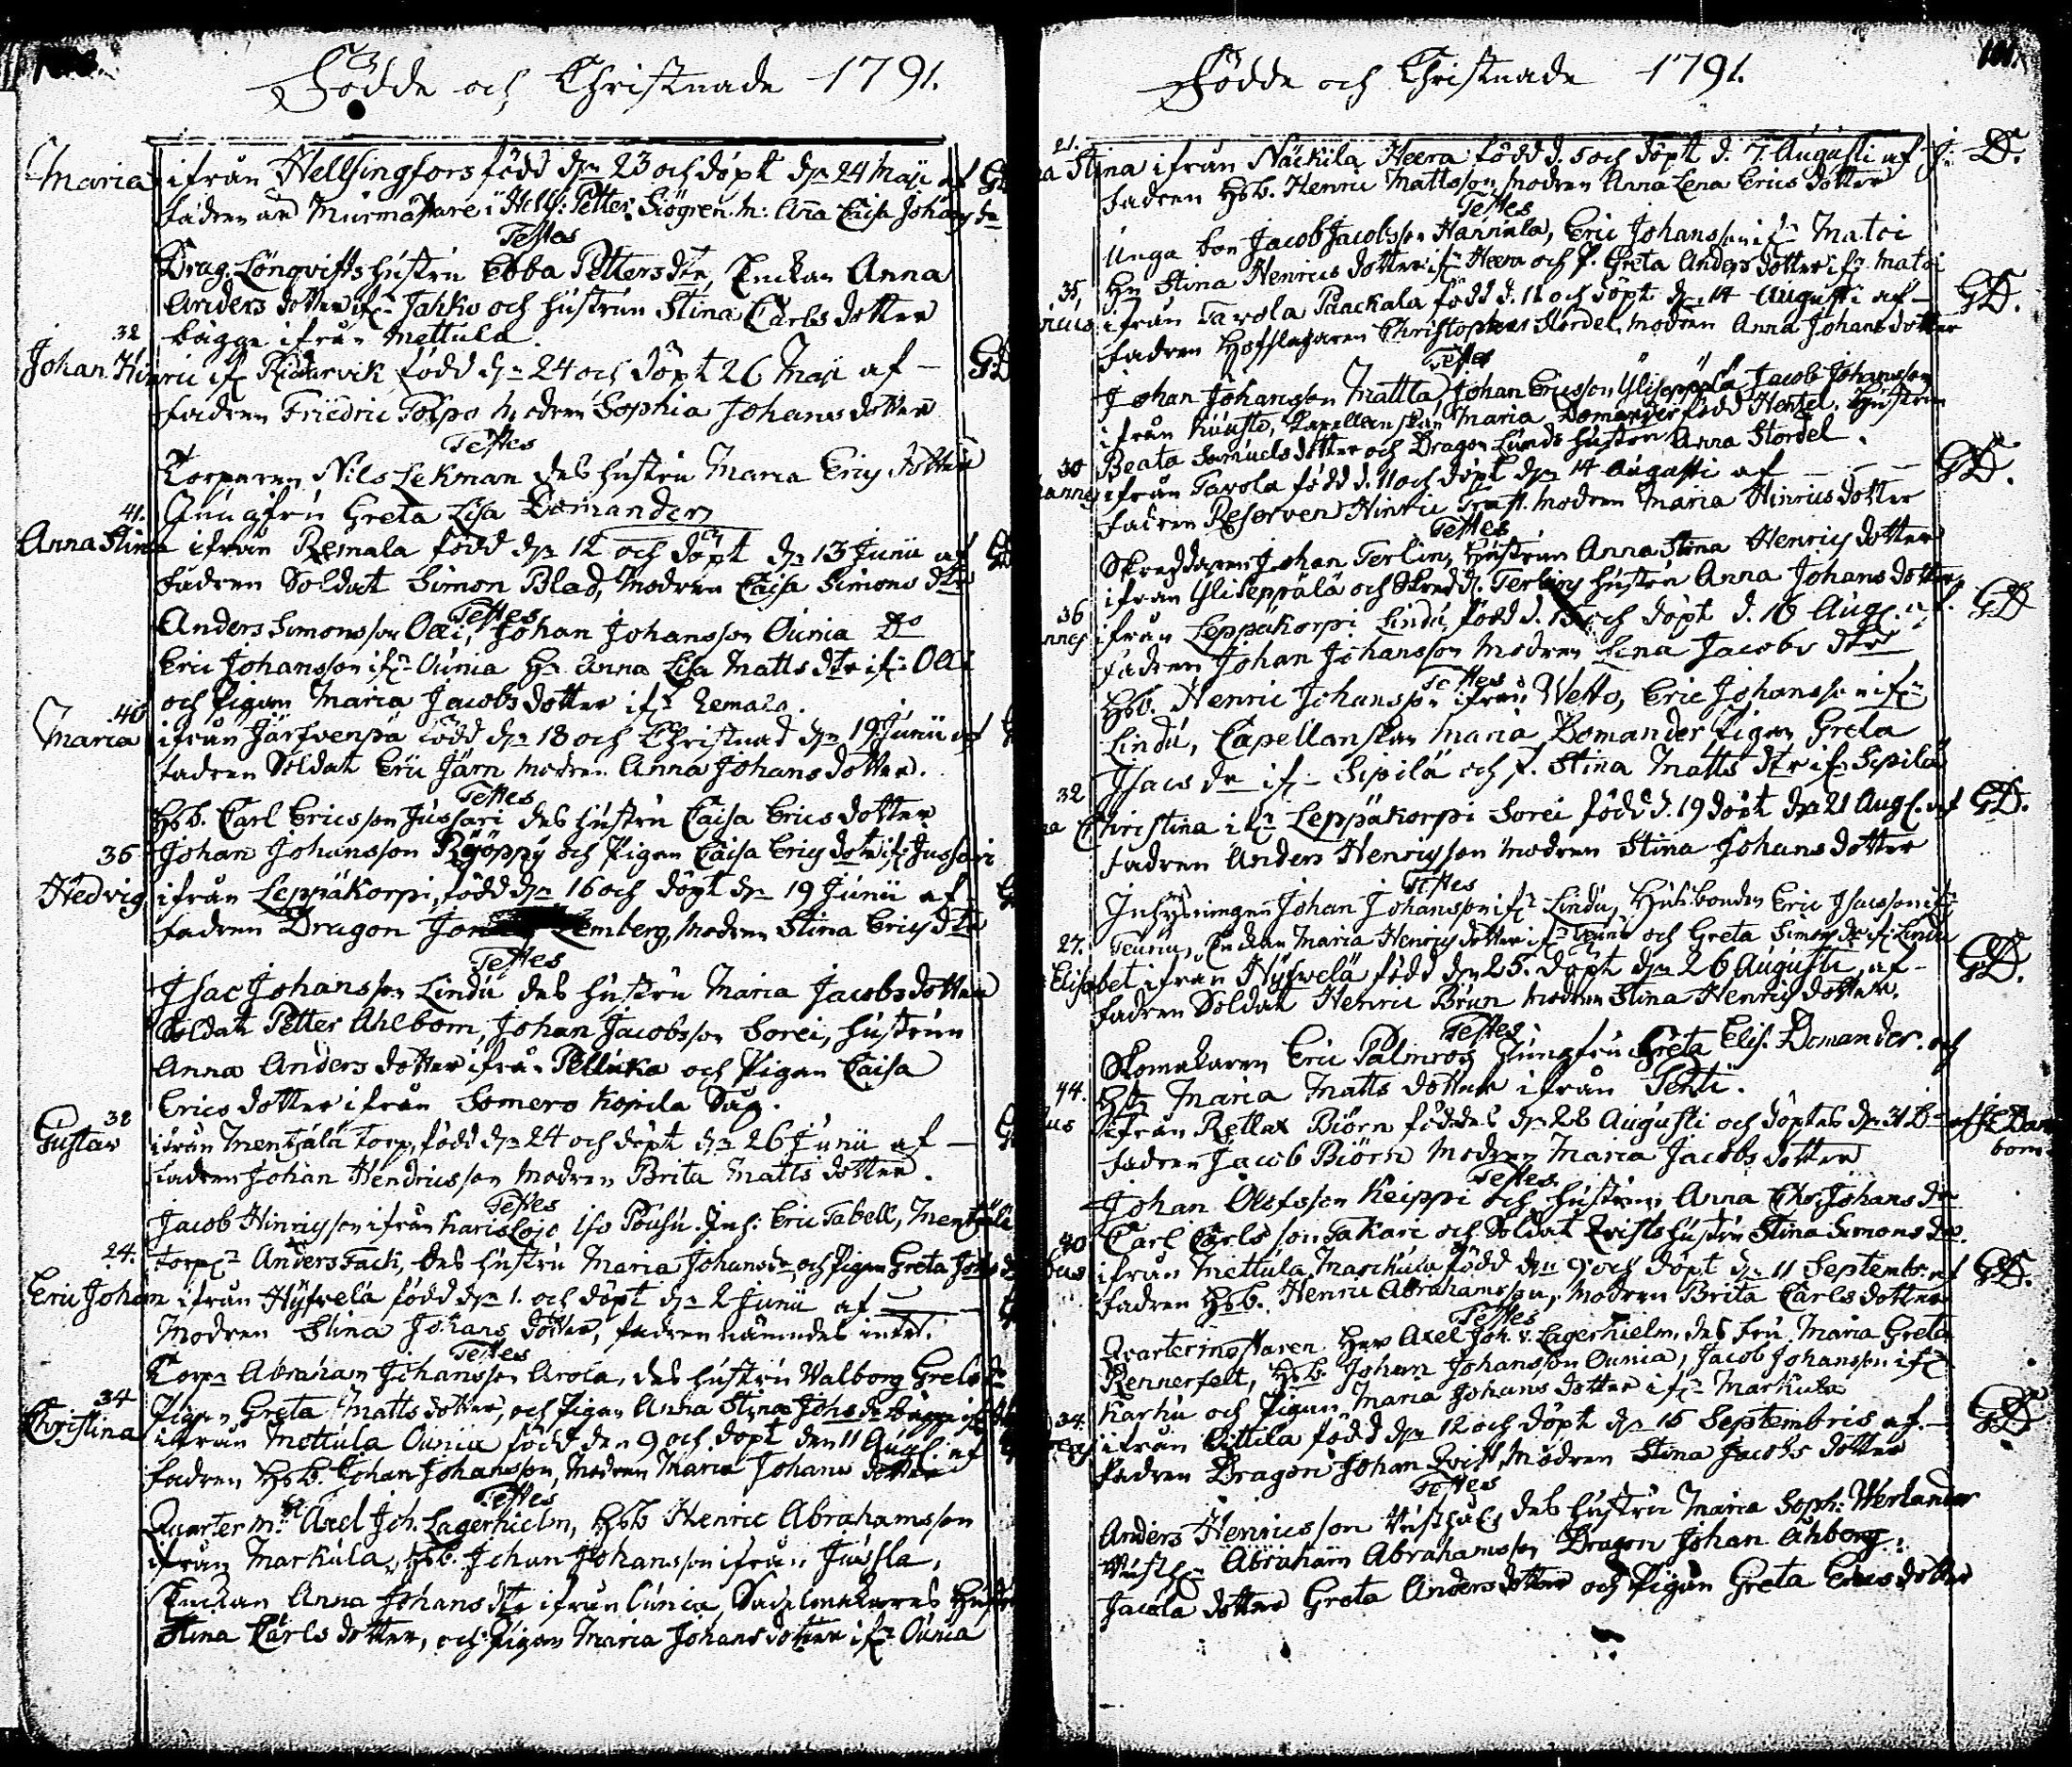 Födde och Christnade 1791.
Maria ifrån Hellsingfors född dn 23 och döpt dn 24 Maji af GD
fadren Murmästare i Hells: Petter Siögren. M: Aña Caisa Johans dr
Testes
Drag. Lönqvists hustru Ebba Petters dtr, Enckan Anna
Anders dotter ifn Jahko och hustrun Stina Carls dotter
bägge ifrån Mettula.
32
Johan Hinric if Riddarvik född dn 24 och döpt 26 Maji af – GD
fadren Friedric Polpo Modren Sophia Johans dotter
Testes
Torparen Nils Lekman des hustru Maria Erics dotter
Jungfru Greta Lisa Domander
41.
Anna Stina ifrån Remala född dn 12 och döpt dn 13 Junii af
fadren Soldat Simon Blad, Modren Caisa Simons dtr
Testes
Anders Simonsson Olli, Johan Johansson Ounia Do
Eric Johansson ifn Ounia Hu Anna Lisa Matts dtr ifn Olli
och Pigan Maria Jacobs dotter ifn Remala.
40
Maria ifrån Järfvenpä född dn 18 och Christnad dn 19 Junii af
fadren Soldat Eric Järn Modren Anna Johans dotter.
Testes
Hsb. Carl Ericsson Jussari des hustru Caisa Erics dotter
Johan Johansson Röyöppy och Pigan Caisa Erics dotr if Jussari
36
Hedvig ifrån Leppäkorpi, född dn 16 och döpt dn 19 Junii af
fadren Dragon Lemberg, Modren Stina Erics dtr
Testes
Isac Johansson Lindu des hustru Maria Jacobs dotter
Soldat Petter Ahlbom, Johan Jacobsson Sorei, hustrun
Anna Anders dotter ifrån Pellinka och Pigan Caisa
Erics dotter ifrån Somero Kopila Såg.
38
Gustav ifrån Mentzälä torp, född dn 24 och döpt dn 26 Junii af –
fadren Johan Hendricsson Modren Brita Matts dotter.
Testes
Jacob Hinricsson ifrån Karislojo Iso Pousu. Inh: Eric Tabell, Mentzälä
torpn Anders Fack, des hustru Maria Johans dr och Pigan Greta Johs dr
24.
Eric Johan ifrån Hyfvelä född dn 1. och döpt dn 2 Junii af
Modren Stina Johans dotter, fadren nämndes intet.
Testes
Torpn Abraham Johansson Arola, des hustru Valborg Grels dr
Pigan Greta Matts dotter, och Pigan Anna Stina Johs dr bägge if
34
Christina ifrån Mettula Ounia född den 9 och döpt den 11 Aug. af
fadren Hsb. Johan Johansson, Modren Maria Johans dotter
Testes
Quarter Mst Axel Joh. Lagerhielm, Hsb Henric Abrahamsson
ifrån Markula, Hsb. Johan Johansson ifrån Jussla,
Enckan Anna Johans dtr ifrån Ounia, Sadelmakares hustru
Stina Carls dotter, och Pigan Maria Johans dotter ifn Ounia
101.
Födde och Christnade 1791.
21.
Stina ifrån Näckilä Heera född d. 5 och döpt d. 7. Augusti af
fadren Hsb. Henric Mattsson Modren Anna Lena Erics dotter
Testes
Unga bon Jacob Jacobsson Hannula, Eric Johansson ifn Matoi
Hu Stina Henrics dotter ifn Heera och P. Greta Anders dotter ifn Matoi
35,
ricus ifrån Tavola Paackala född d. 11 och döpt dn 14 Augusti af – GD.
fadren Hofslagaren Christopher Stordel, Modren Anna Johans dotter
Testes
Johan Johansson Mattla, Johan Ericsson Yliseppälä Jacob Johansson
ifrån Kuusto, Kapellanskan Maria Domander född Hentzel. Hustrun
Beata Samuels dotter och Dragon Lunds hustru Anna Stordel.
30
hannes ifrån Tavola född d. 11 och döpt dn 14 Augusti af – – GD.
fadren Reserven Hinric Trast. Modren Maria Hinrics dotter
Testes
Skräddaren Johan Terlin, hustrun Anna Stina Henrics dotter
ifrån Yliseppälä och Skrädd. Terlins hustru Anna Johans dotter
36
nnes ifrån Leppäkorpi Lindu född d. 15 och döpt d. 16 Aug. af. GD
fadren Johan Johansson Modren Lena Jacobs dtr
Testes
Hsb. Henric Johansson ifrån Vetto, Eric Johansson ifn
Lindu, Capellanskan Maria Domander Pigan Greta
Isacs dr if – Sepilä och P. Stina Matts dtr ifn Sepilä
32
na Christina ifn Leppäkorpi Sorei född d. 19 döpt dn 21 Aug. af GD.
fadren Anders Henricsson Modren Stina Johans dotter
Testes
Inhysningen Johan Johansson ifn Lindu, Husbonden Eric Isacsson ifn
Teuriu, Enckan Maria Henrics dotter ifn Teuru och Greta Simons dr if Lindu
27.
Elisabet ifrån Hyfvelä född dn 25. döpt dn 26 Augusti, af – GD.
fadren Soldat Henric Brun Modren Stina Henrics dotter.
Testes
Skomakaren Eric Palmros Jungfru Greta Elis. Domander. och
Hu Maria Matts dotter ifrån Tehti.
44.
us ifrån Retlax Biörn föddes dn 28 Augusti och döptes dn 31 Do af
fadren Jacob Biörn Modren Maria Jacobs dotter
Testes
Johan Olofsson Keippi och hustrun Anna Chr. Johans dr
Carl Carlsson Takari och Soldat Qvists hustru Stina Simons dr.
40
bus ifrån Mettula Marckula född dn 9 och döpt dn 11 Septembr. af GD.
fadren Hsb. Henric Abrahamsson, Modren Brita Carls dotter
Testes
Qvartermästaren Herr Axel Joh. v. Lagerhielm, des fru Maria Greta
Rennerfelt, Hsb. Johan Johansson Ounia, Jacob Johansson ifn
Karhu och Pigan Maria Johans dotter ifn Markula
34.
ifrån Cittila född dn 12 och döpt dn 15 Septembris af. – GD
fadren Dragon Johan Qvist, Modren Stina Jacobs dotter
Testes
Anders Henricsson des hustru Maria Soph: Werlander
Abraham Abrahamsson Dragon Johan Åhberg,
Jacala dotter Greta Anders dotter och Pigan Greta Erics dotter